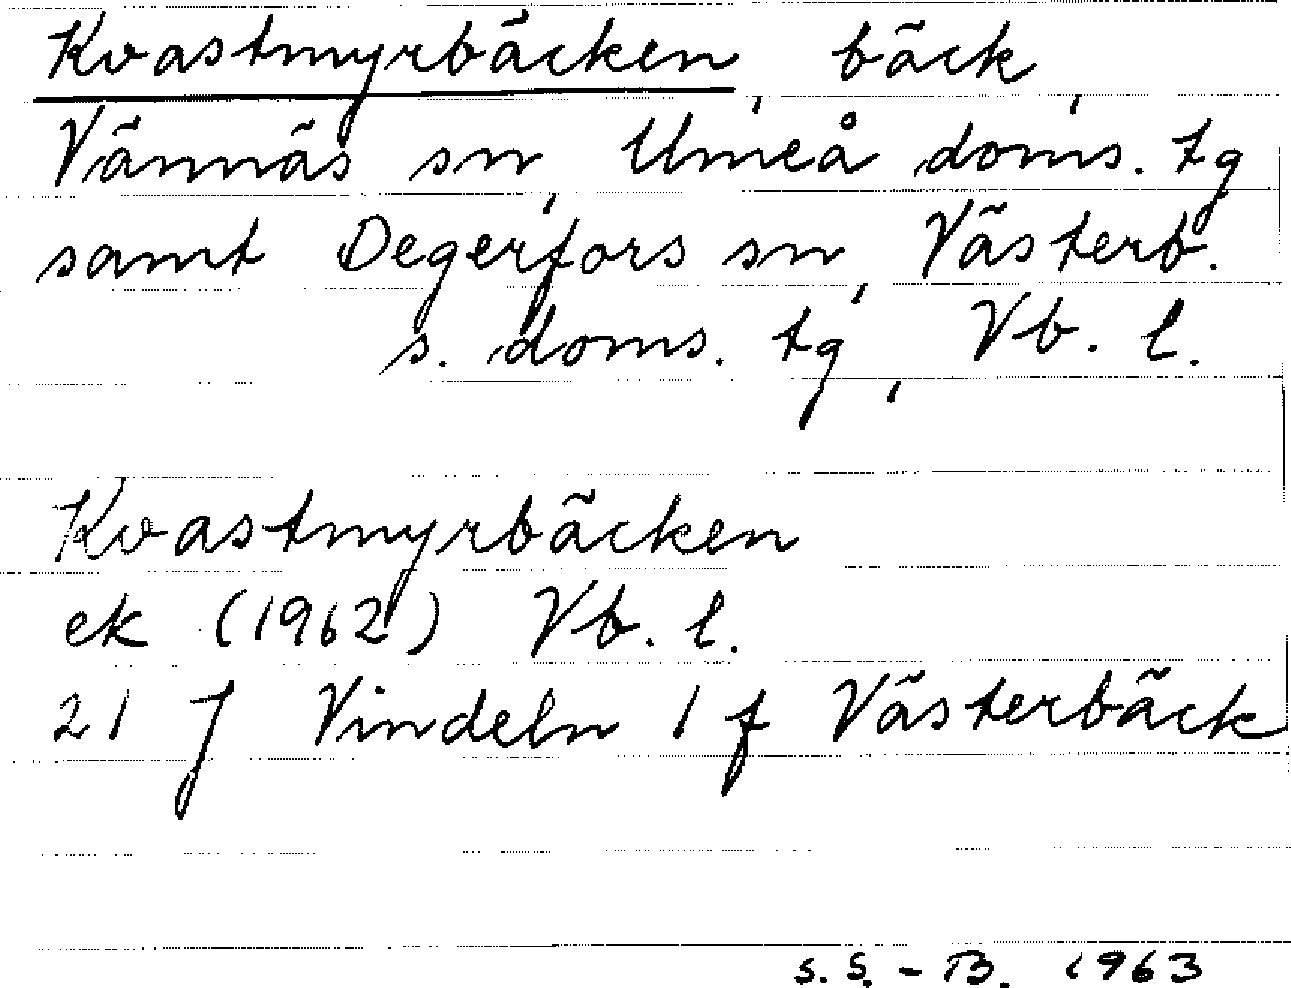 Kvastmyrbäcken, bäck,
Vännäs sn, Umeå doms. tg
samt Degerfors sn, Västerb.
s. doms. tg, Vb. l.
Kvastmyrbäcken
ek (1962) Vb. l.
21 J Vindeln 1 f Västerbäck
S.S.-B. 1963